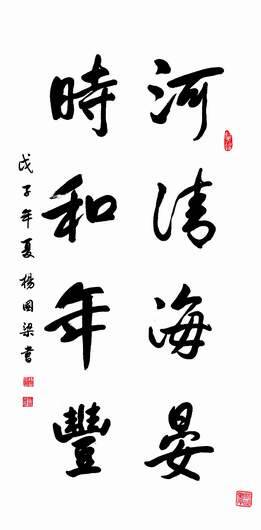 河清海晏
時和年豐
戊子年夏楊國梁書